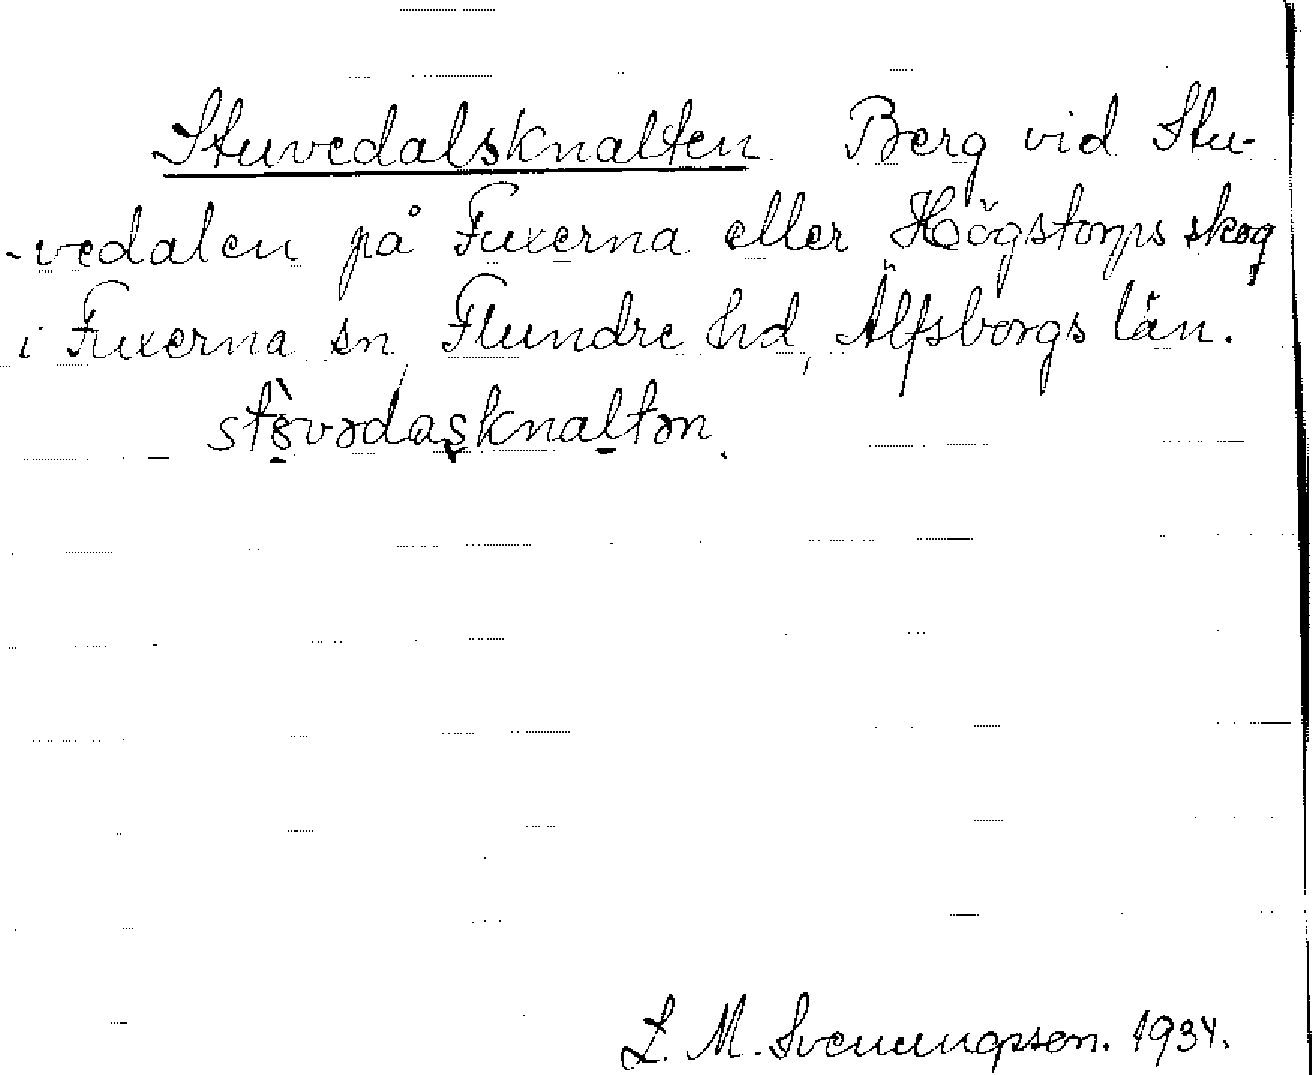 Stuvedalsknalten Berg vid Stu-
-vedalen på Fuxerna eller Högstorps skog
i Fuxerna sn, Flundre hd, Älfsborgs län.
stòvədaşknaltən.
L. M. Svenungsson. 1934.